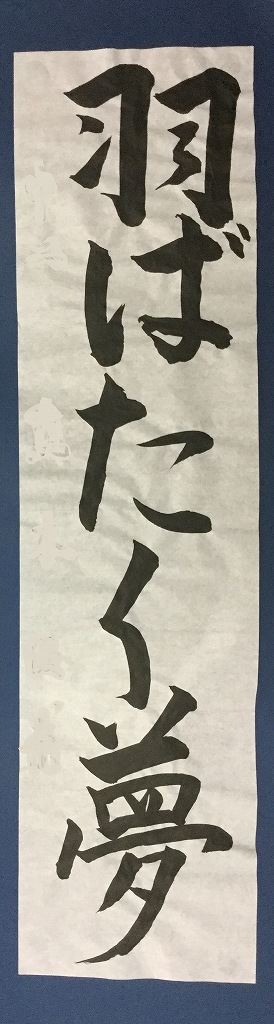 羽ばたく夢